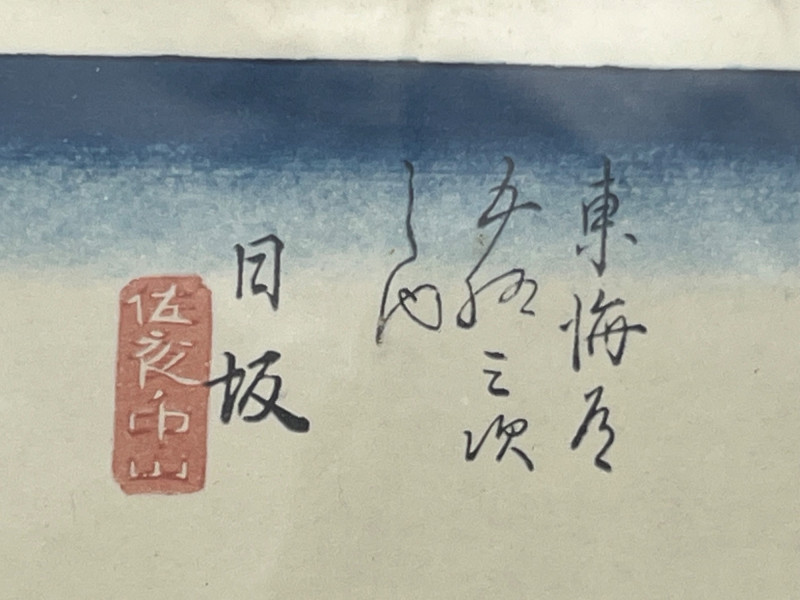 東海道
五拾三次
之内
日坂
佐夜中山